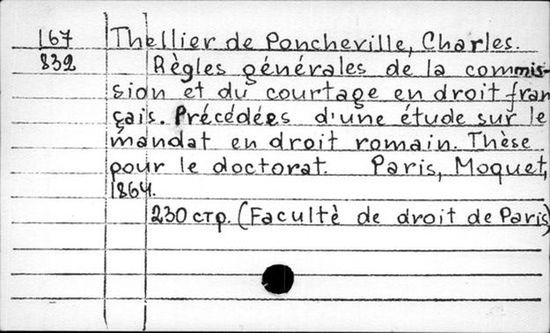 167 Thellier de Poncheville, Charles.
832 Règles générales de la commis-
sion et du courtage en droit fran
çais. Précédées d'une étude sur le
mandat en droit romain. Thèse
pour le doctorat. Paris, Moquet,
1864.
230 стр. (Facultè de droit de Paris)